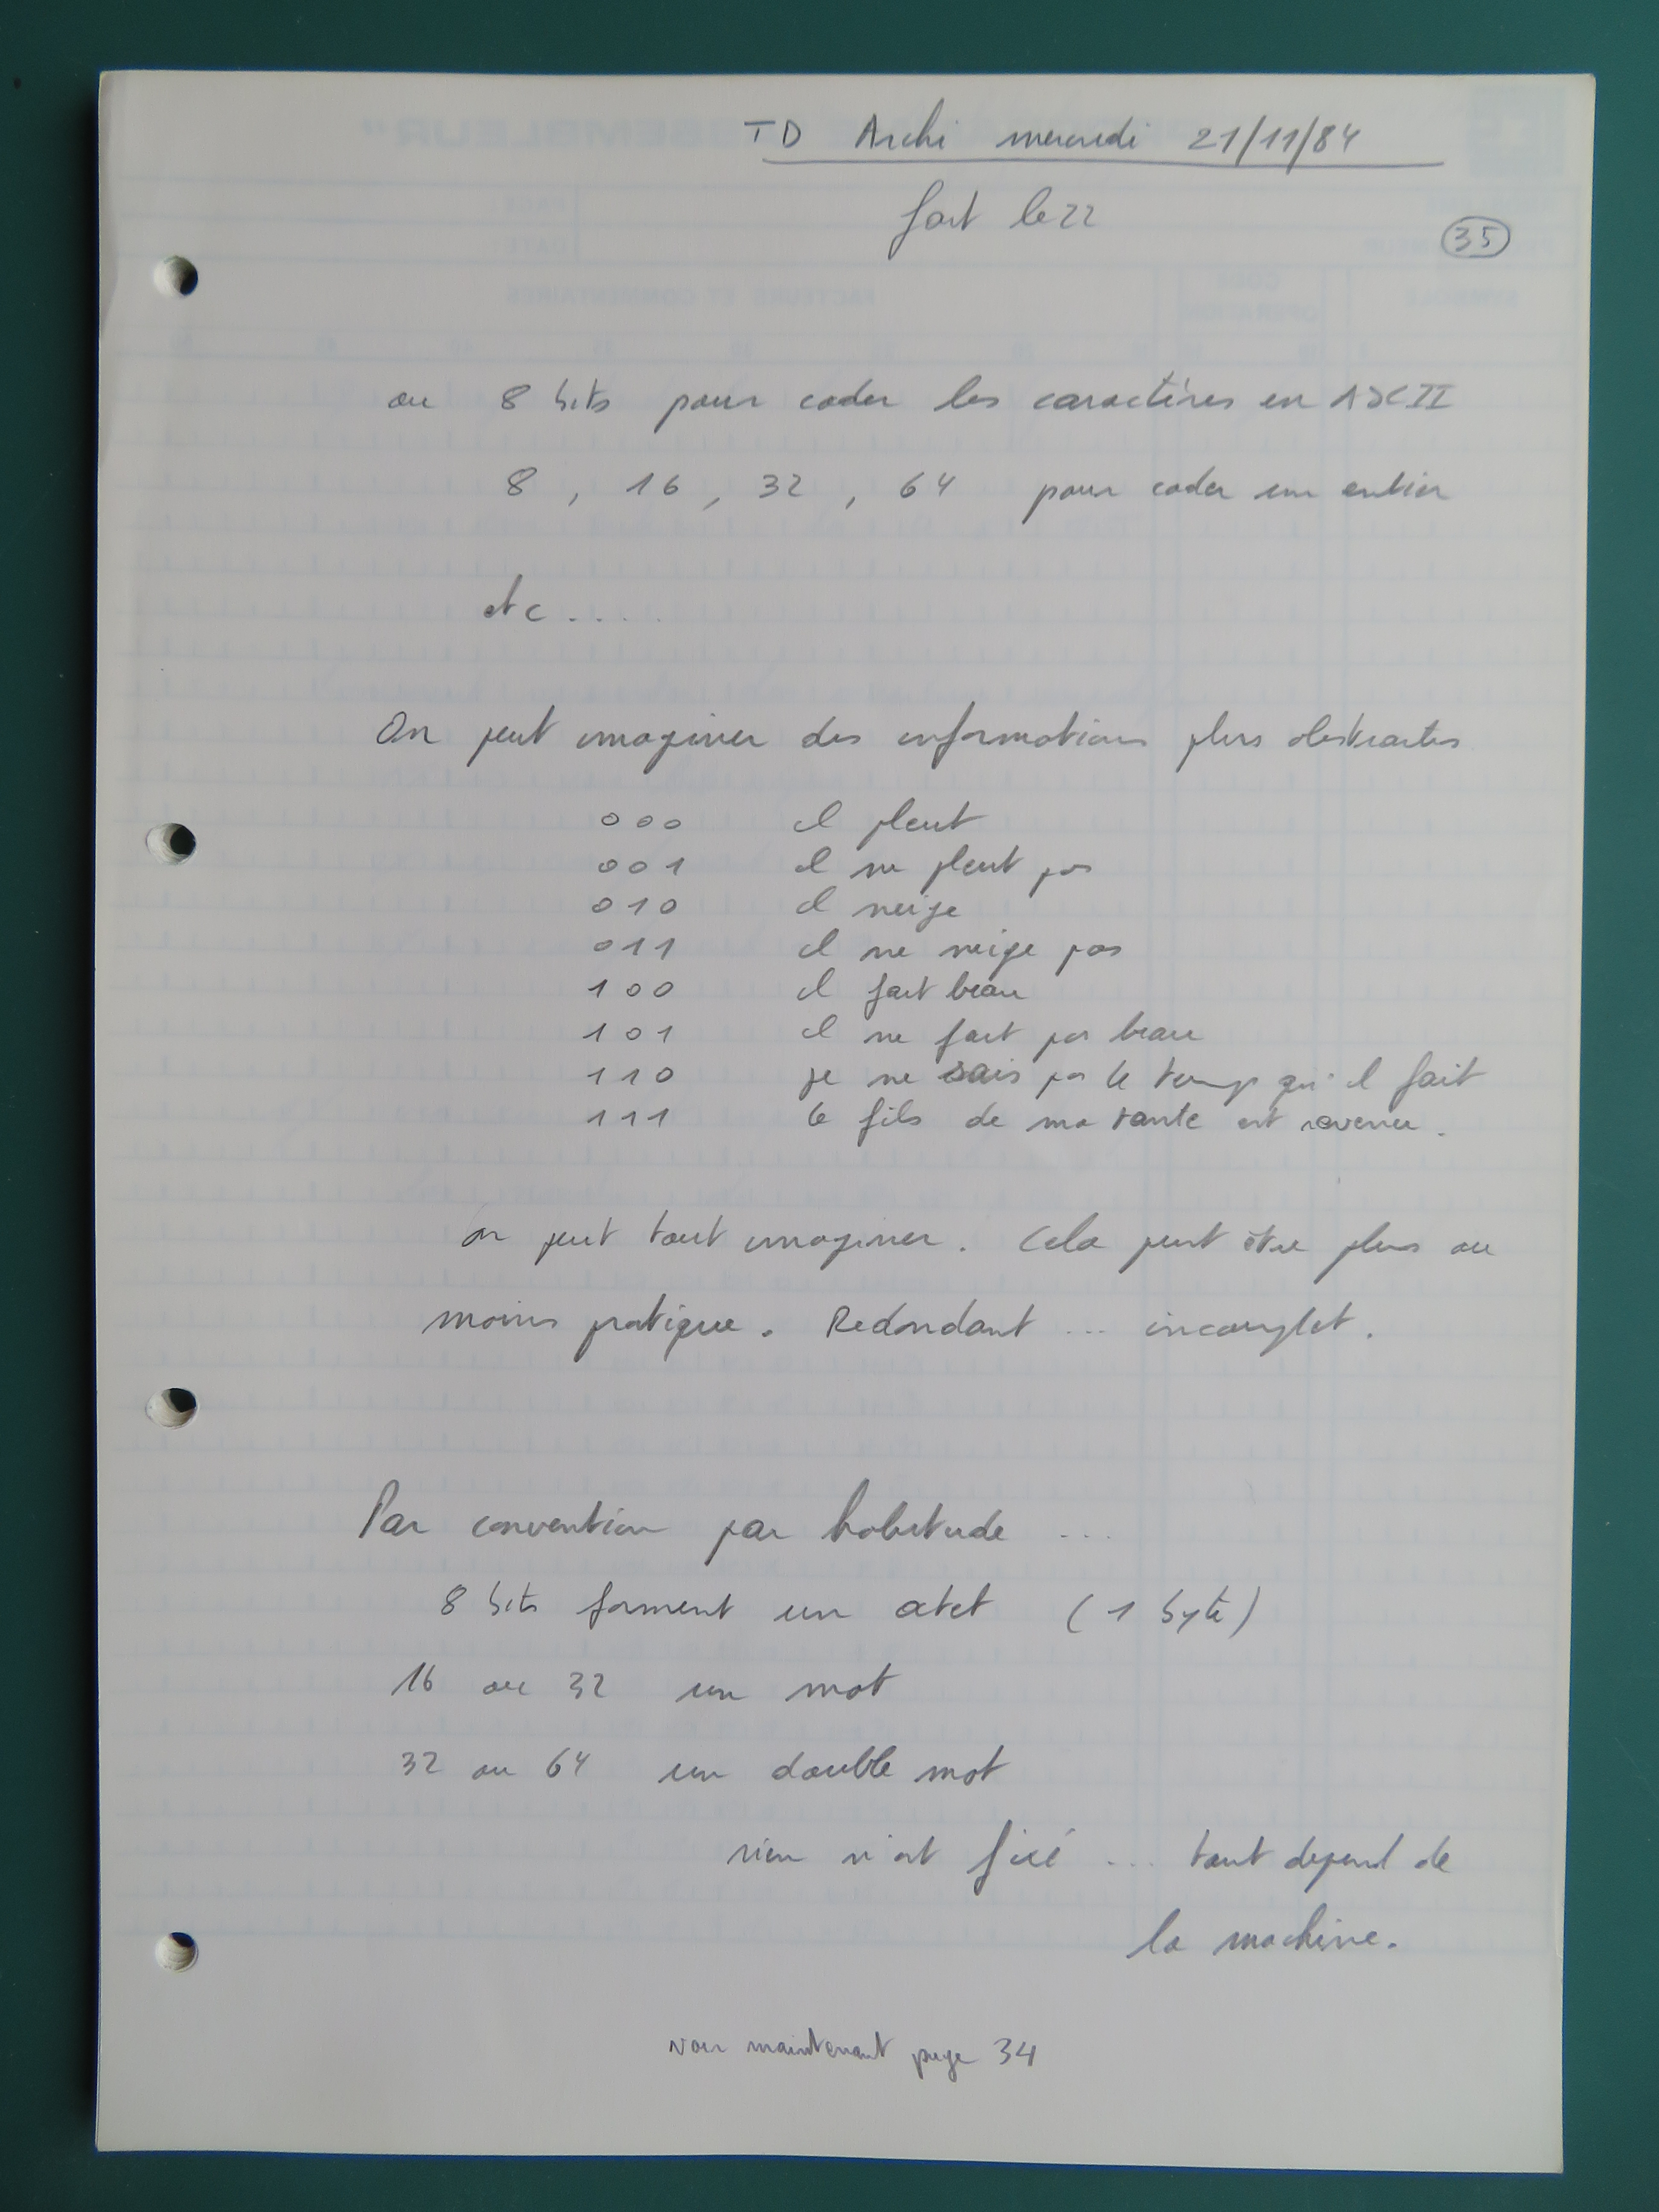 TD Archi mercredi 21/11/84
fait le 22
35
ou 8 bits pour coder les caractères en ASCII
8, 16, 32, 64 pour coder un entier
etc....
On peut imaginer des informations plus abstraites
000 il pleut
001 il ne pleut pas
010 il neige
011 il ne neige pas
100 il fait beau
101 il ne fait pas beau
110 je ne sais pas le temps qu'il fait
111 le fils de ma tante est revenu.
on peut tout imaginer. Cela peut être plus ou
moins pratique. Redondant ... incomplet.
Par convention par habitude ...
8 bits forment un octet (1 byte)
16 ou 32 un mot
32 ou 64 un double mot
rien n'est fixé ... tout depend de
la machine.
voir maintenant page 34